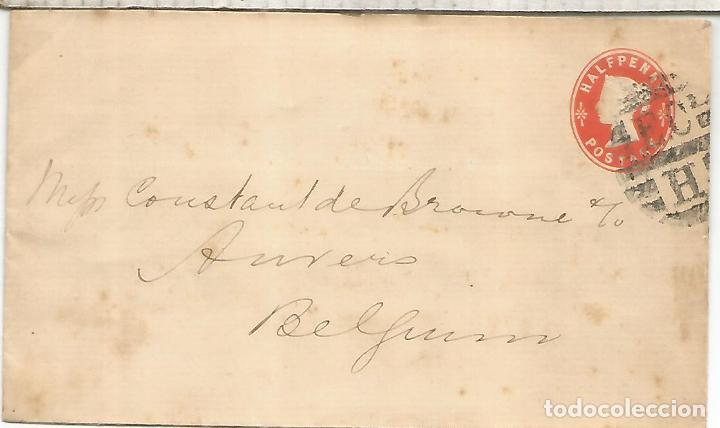 HALFPENNY
POSTAGE
E.C.
H
Mess Constant de Browne & Co
Anvers
Belgium
todocoleccion.net